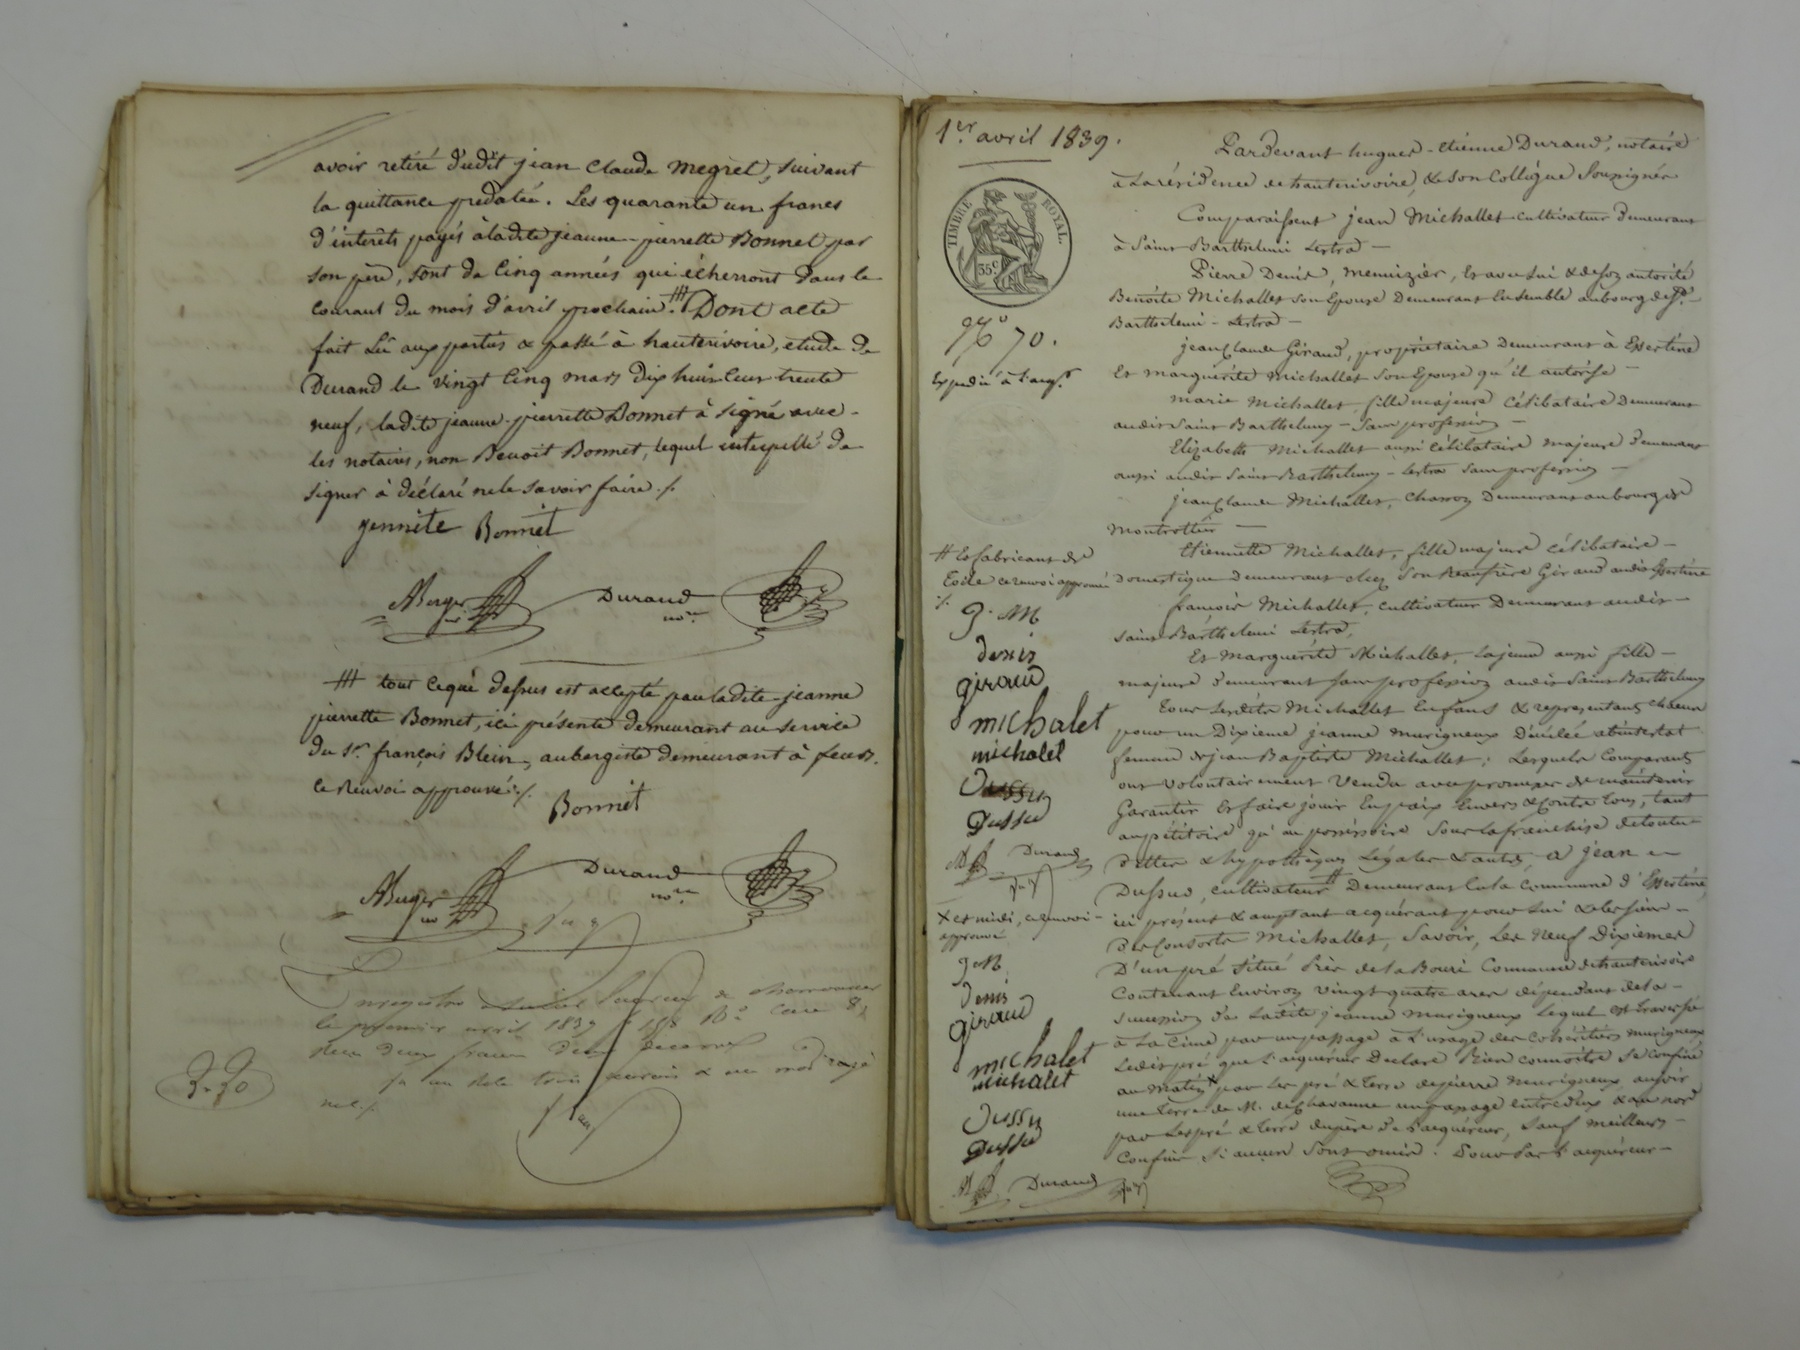 avoir retiré dudit jean Claude Megret, suivant
la quittance prédatée. Les quarante un francs
d'interêts payés à ladite jeanne-pierrette Bonnet par
son père, sont de Cinq années qui écherront dans le
courant du mois d'avril prochain. # Dont acte
fait Lû aux parties & passé à hauterivoire, etude de
Durand le vingt Cinq mars dix huit Cent trente
neuf, ladite jeanne-pierrette Bonnet à signé avec
les notaires, non Benoit Bonnet, lequel interpellé de
signer à déclaré ne le savoir faire ./.
jennite Bonnet
ABerger Durand
no.re
# tout ceque dessus est accepté par ladite jeanne
pierrette Bonnet, ici présente demeurant au service
du Sr. françois Blein, aubergiste demeurant à feurs.
ce Renvoi approuvé ./.
Bonnet
ABerger Durand
no no.re
Enregistré
le premier avril 1839 Case 8
deux francs
3.30
1er avril 1839.
TIMBRE ROYAL.
35c
No 70.
Expedié à l'acqr
Pardevant hugues-etienne Durand, notaire
à La résidence de hauterivoire, & son Collègue Soussignés
Comparaissent jean Michallet cultivateur demeurant
à Saint Barthelemi Lestra —
Pierre Denis, Menuizier, Et avec Lui & de son autorité
Benoite Michallet Son Epouse Demeurant Ensemble au bourg de St.
Barthelemi - Lestra —
jean Claude Giraud, propriétaire Demeurant à Essertine
Et marguerite Michallet Son Epouse qu'il autorise —
marie Michallet, fille majeure Célibataire Demeurant
audit Saint Barthelemy — Sans profession —
Elizabeth Michallet aussi Célibataire majeure demeurant
aussi audit Saint Barthelemy - Lestra Sans profession —
jean Claude Michallet, Charron Demeurant au bourg de
Montrottier —
Etiennette Michallet, fille majeure Célibataire —
Domestique Demeurant chez Son Beaufrère Giraud audit Essertine
françois Michallet, cultivateur Demeurant audit —
Saint Barthelemi Lestra,
Et Marguerite Michallet, La jeune aussi fille —
majeure demeurant Sans profession audit Saint Barthelemy
Tous Lesdits Michallet Enfans & representans chacun
pour un Dixieme jeanne murigneux Décédée abintestat
femme de jean Baptiste Michallet; Lesquels Comparants
ont volontairement Vendu avec promesse de maintenir
Garantir Et faire jouir En paix Envers & Contre tous, tant
au pétitoire qu'au possessoire Sous la franchise de toutes
dettes & hypothèques Légales & autres, a jean
Dussud, cultivateur # Demeurant En la Commune d'Essertine,
ici présent & acceptant acquérant pour Lui & les siens —
des Consorts Michallet, Savoir, Les Neuf Dixiemes
D'un pré Situé Commune de hauterivoire
Contenant Environ Vingt quatre ares dépendant de la —
succession de Ladite jeanne Murigneux Lequel est traversé
à La Cime par un passage à L'usage des Cohéritiers Murigneux
Ledit pré que L'acquéreur Declare Bien connoitre Se confine
au Matin X par Les pré & terre de pierre Murigneux, au soir
une terre de M. de Chavanne un passage entredeux & au nord
par Les pré & terre du père de L'acquéreur, Sauf meilleurs —
Confins Si aucun Sont omis. Pour Par L'acquéreur —
# Et fabricant de
Toile ce renvoi approuvé
./.
J. M
denis
giraud
michalet
michalet
Dussu
Durand
X et midi, ce renvoi
approuvé
J M
Denis
giraud
michalet
michalet
Dussu
Durand